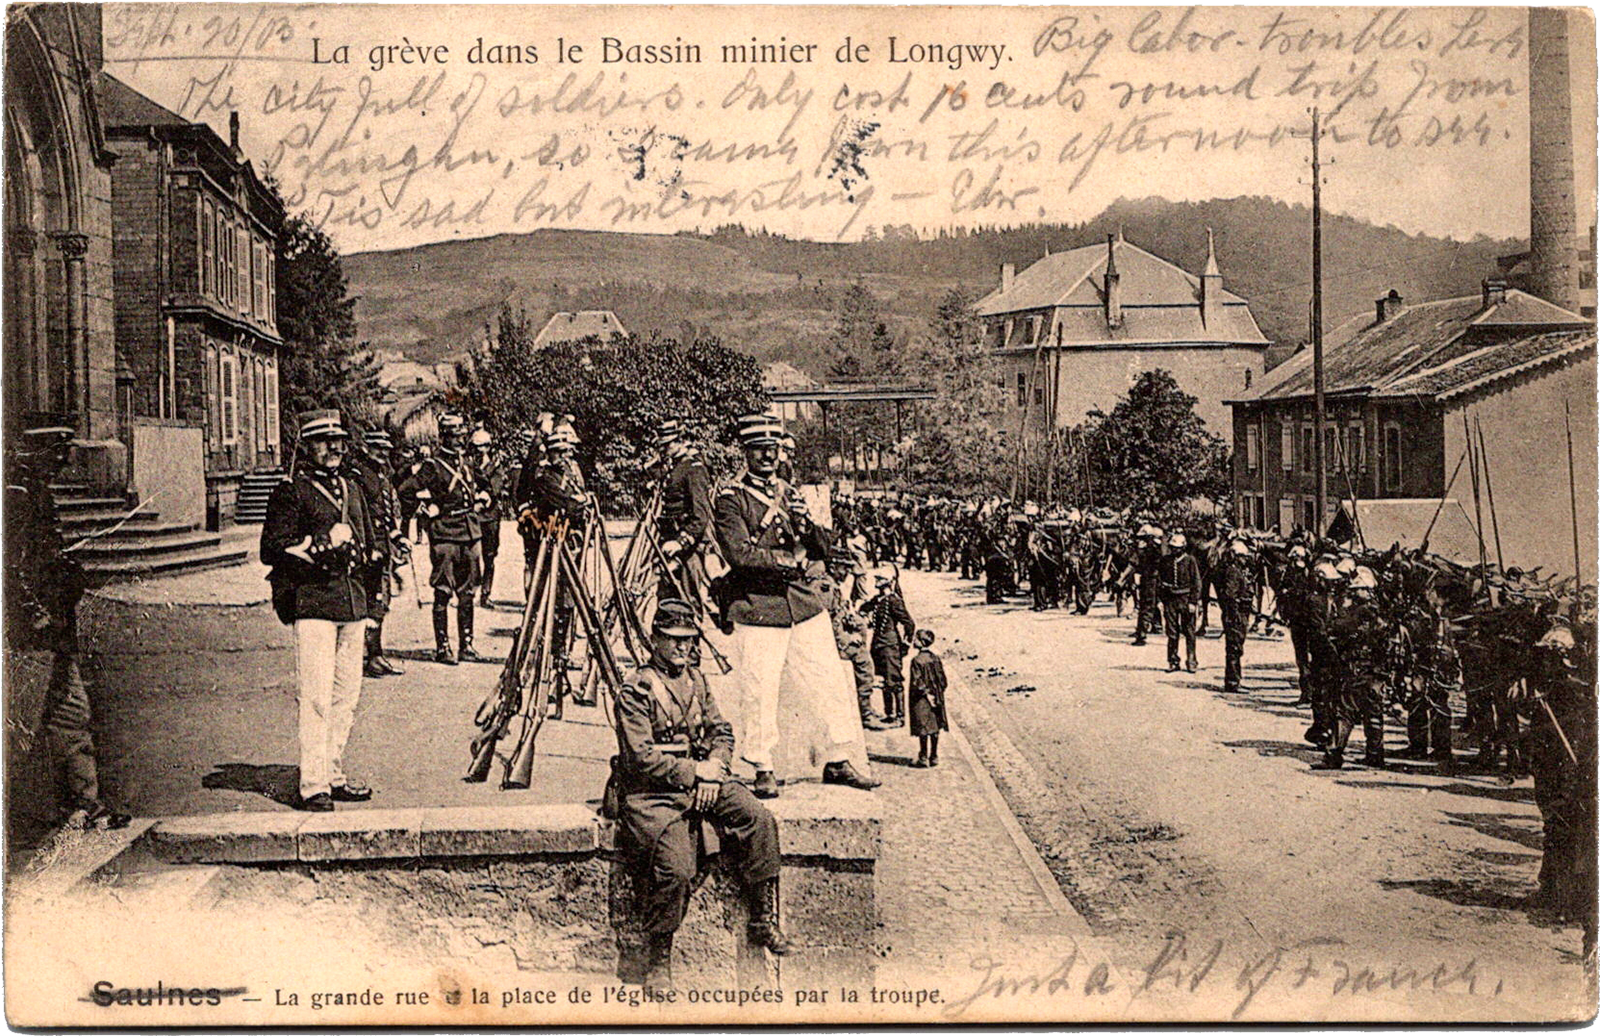 Sept. 20/05.
La grève dans le Bassin minier de Longwy.
Big labor-troubles here
The city full of soldiers. Only cost 16 cents round trip from
Petingen, so I came down this afternoon to see.
'Tis sad but interesting — Edw.
Just a bit of France.
Saulnes — La grande rue et la place de l'église occupées par la troupe.